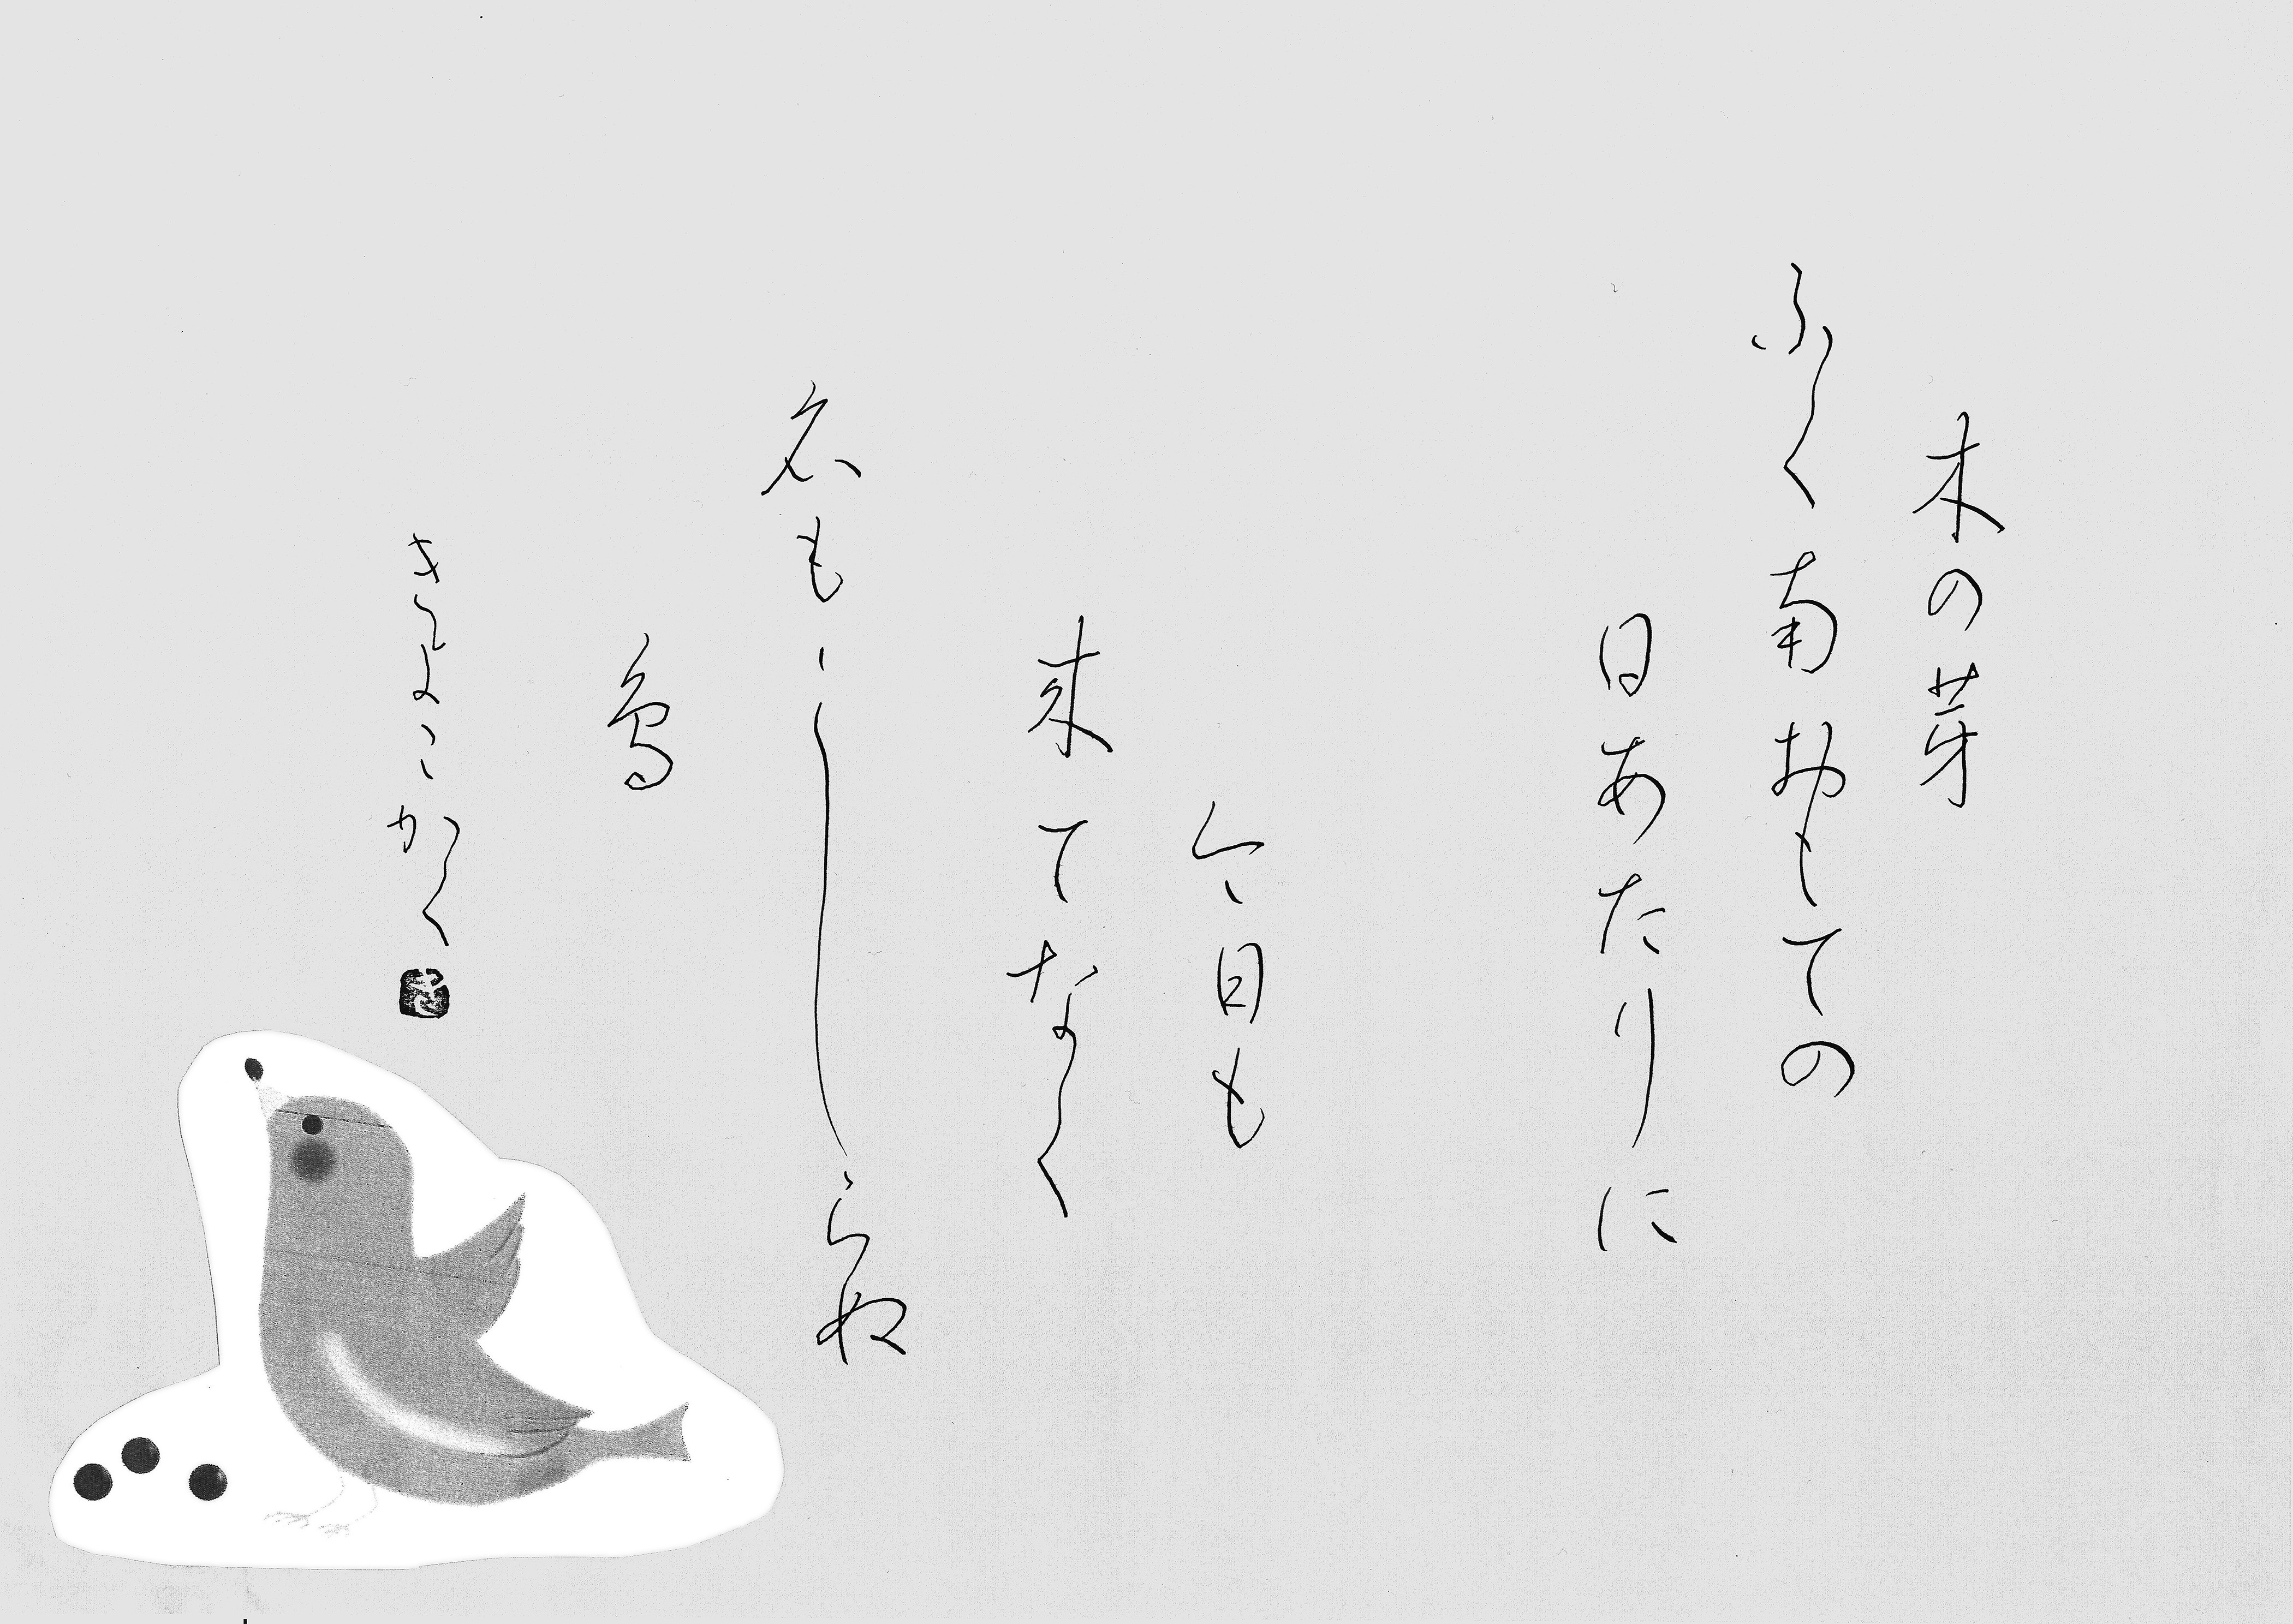 木の芽
ふく南おもての
日あたりに
今日も
来てなく
名もしらぬ
鳥
かく